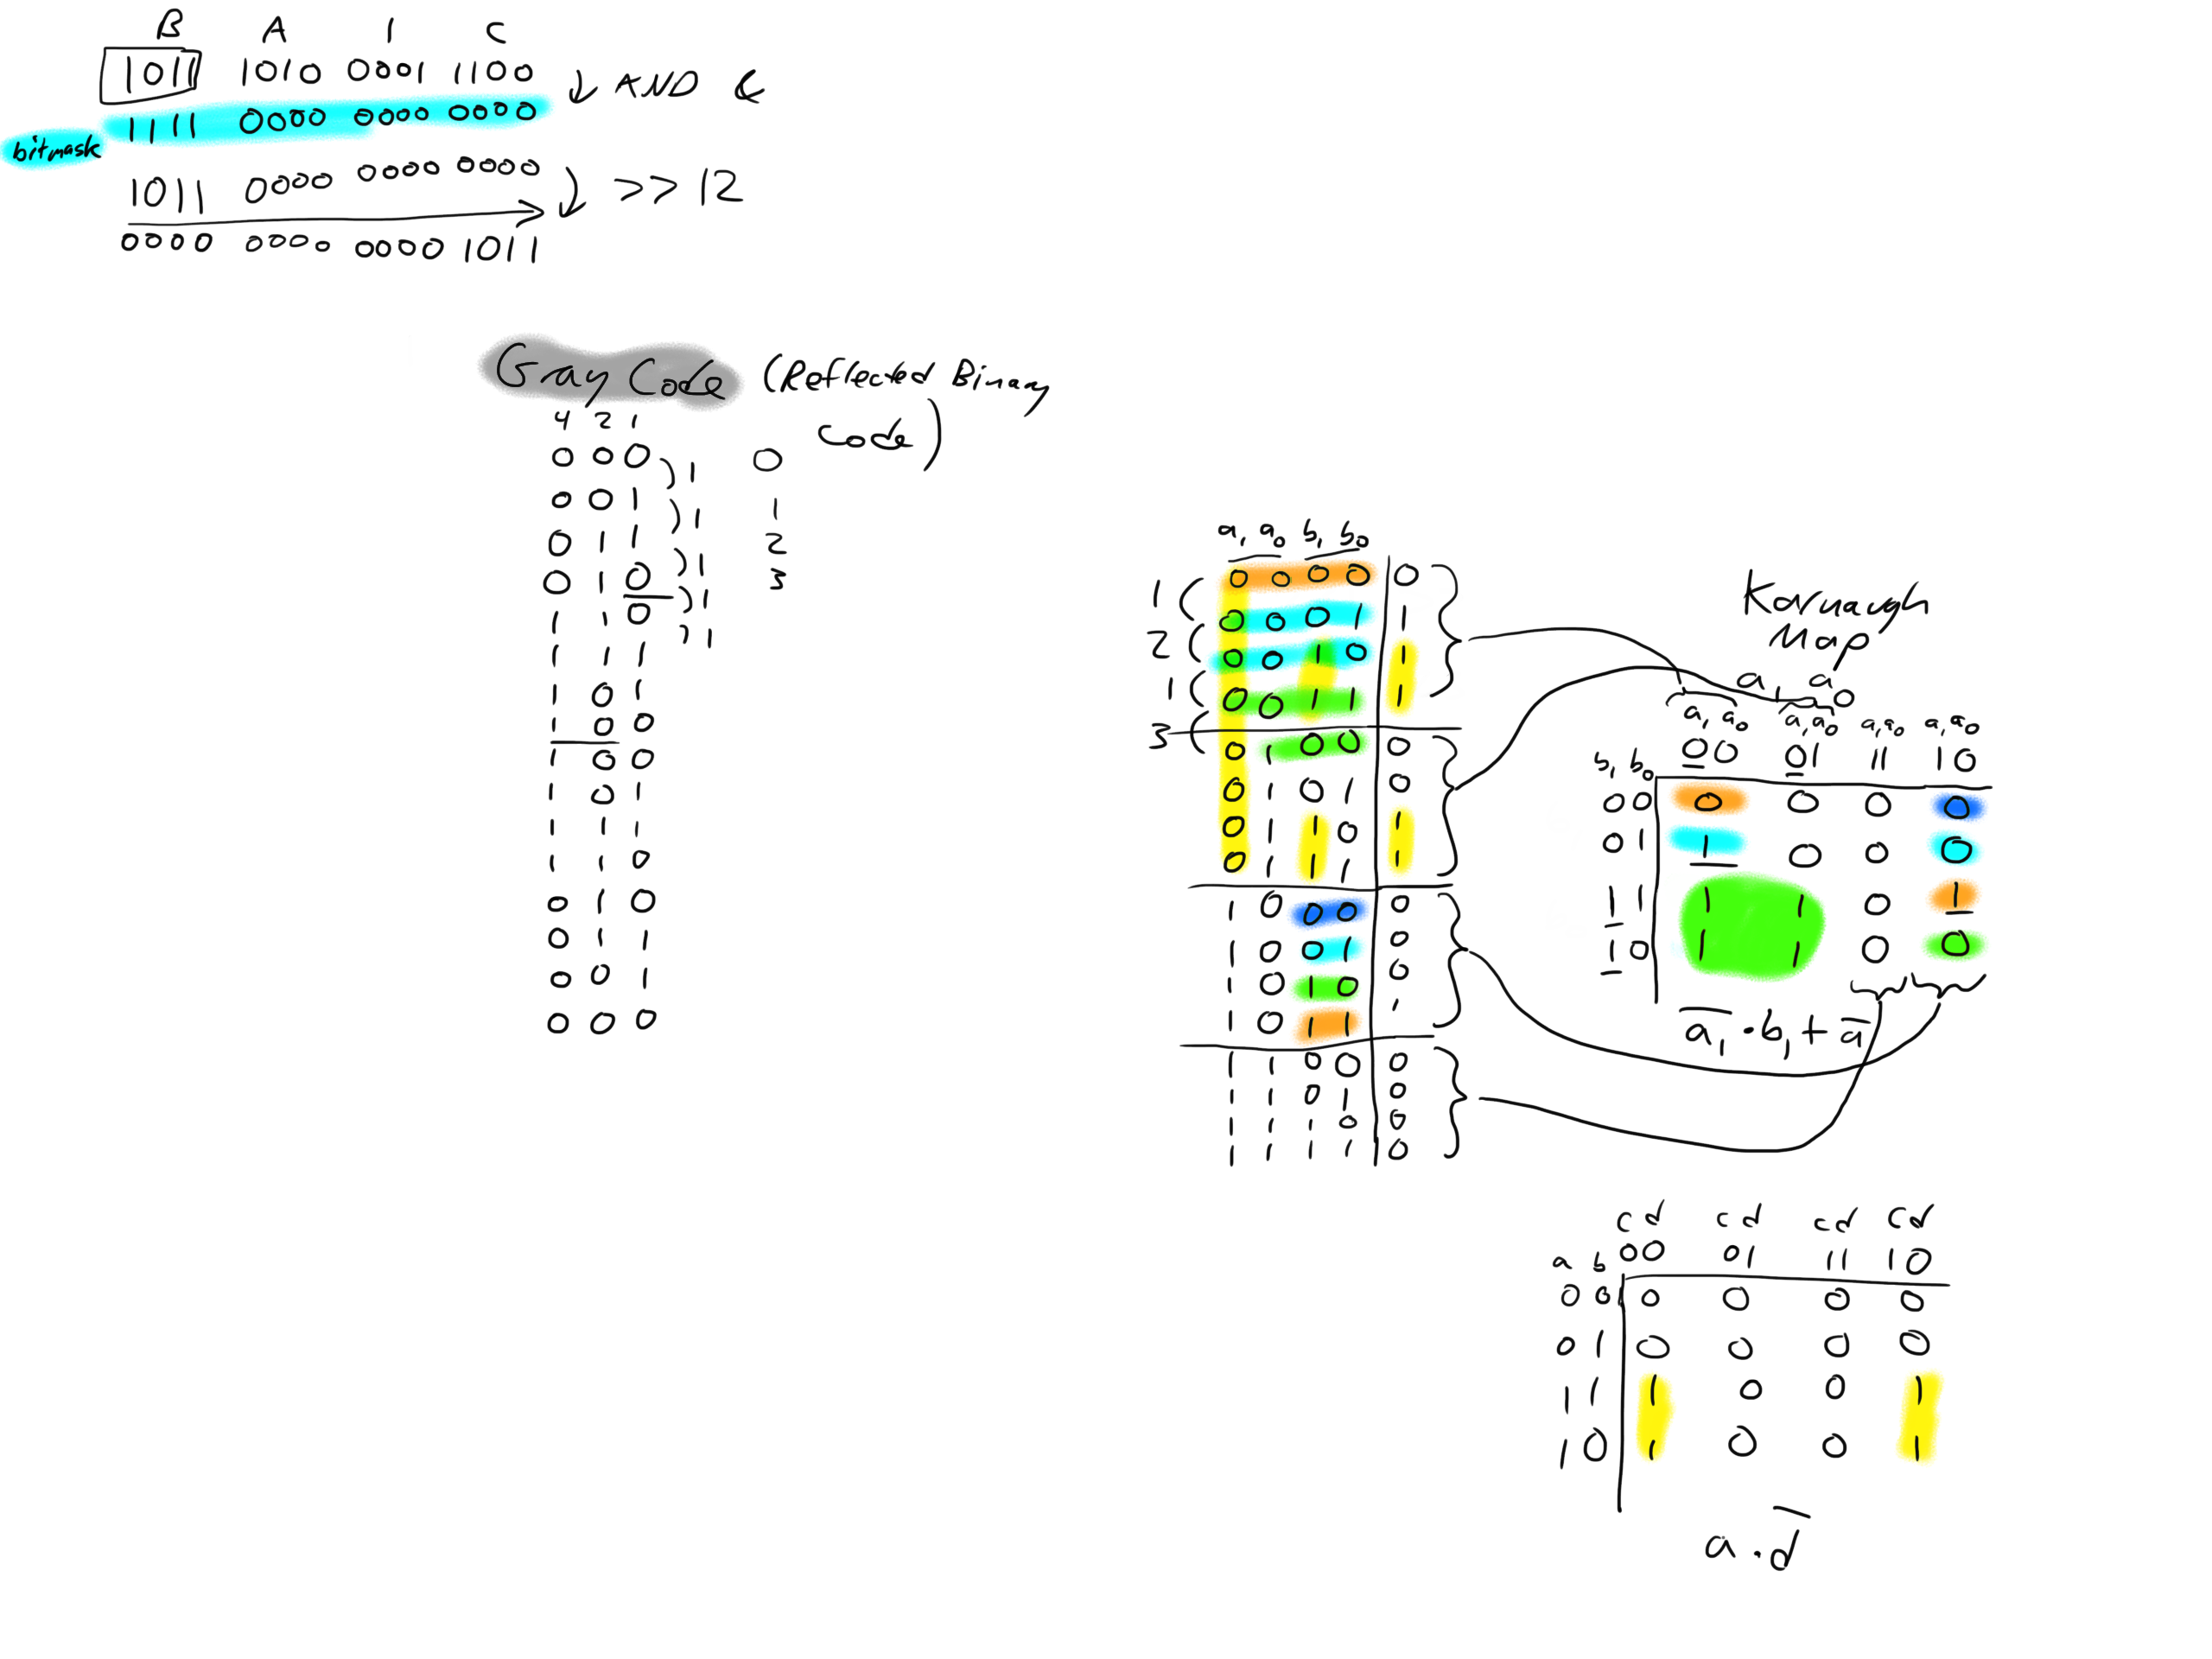 B A 1 C
1011 1010 0001 1100 ↓ AND &
1111 0000 0000 0000
bitmask
1011 0000 0000 0000 >> 12
0000 0000 0000 1011
Gray Code (Reflected Binary
Code)
4 2 1
0 0 0 )1 0
0 0 1 )1 1
0 1 1 )1 2
0 1 0 )1 3
1 1 0 )1
1 1 1
1 0 1
1 0 0
1 0 0
1 0 1
1 1 1
1 1 0
0 1 0
0 1 1
0 0 1
0 0 0
a₁ a₀ b₁ b₀
0 0 0 0 0
1
0 0 0 1 1
2
0 0 1 0 1
1
0 0 1 1 1
3
0 1 0 0 0
0 1 0 1 0
0 1 1 0 1
0 1 1 1 1
1 0 0 0 0
1 0 0 1 0
1 0 1 0 0
1 0 1 1 1
1 1 0 0 0
1 1 0 1 0
1 1 1 0 0
1 1 1 1 0
Karnaugh
Map
a₁ a₀
a₁ a₀ a₁ a₀ a₁ a₀ a₁ a₀
b₁ b₀ 00 01 11 10
00 0 0 0 0
01 1 0 0 0
11 1 1 0 1
10 1 1 0 0
a̅₁ · b₁ + a̅
cd cd cd cd
a b 00 01 11 10
0 0 0 0 0 0
0 1 0 0 0 0
1 1 1 0 0 1
1 0 1 0 0 1
a · d̅